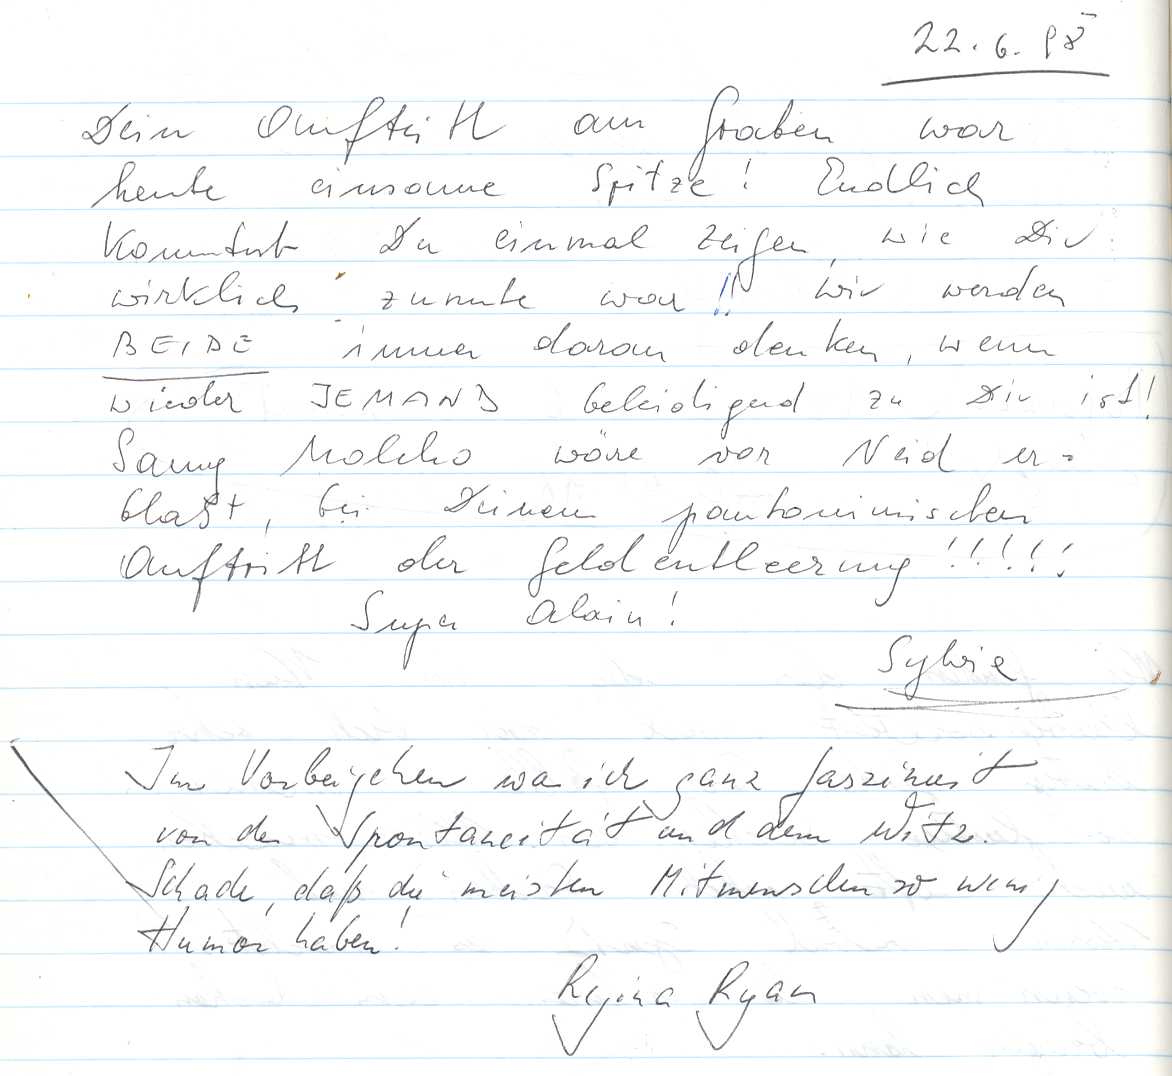 22.6.98
Dein Auftritt am Graben war
heute einsame Spitze! Endlich
konntest Du einmal zeigen, wie Dir
wirklich zumute war!! Wir werden
BEIDE immer daran denken, wenn
wieder JEMAND beleidigend zu Dir ist!
Samy Molcho wäre vor Neid er-
blaßt, bei Deinem pantomimischen
Auftritt der Geldentleerung!!!!!
Super Alain!
Sylvie
Im Vorbeigehen war ich ganz fasziniert
von der Spontaneität und dem Witz.
Schade, daß die meisten Mitmenschen so wenig
Humor haben!
Regina Ryan